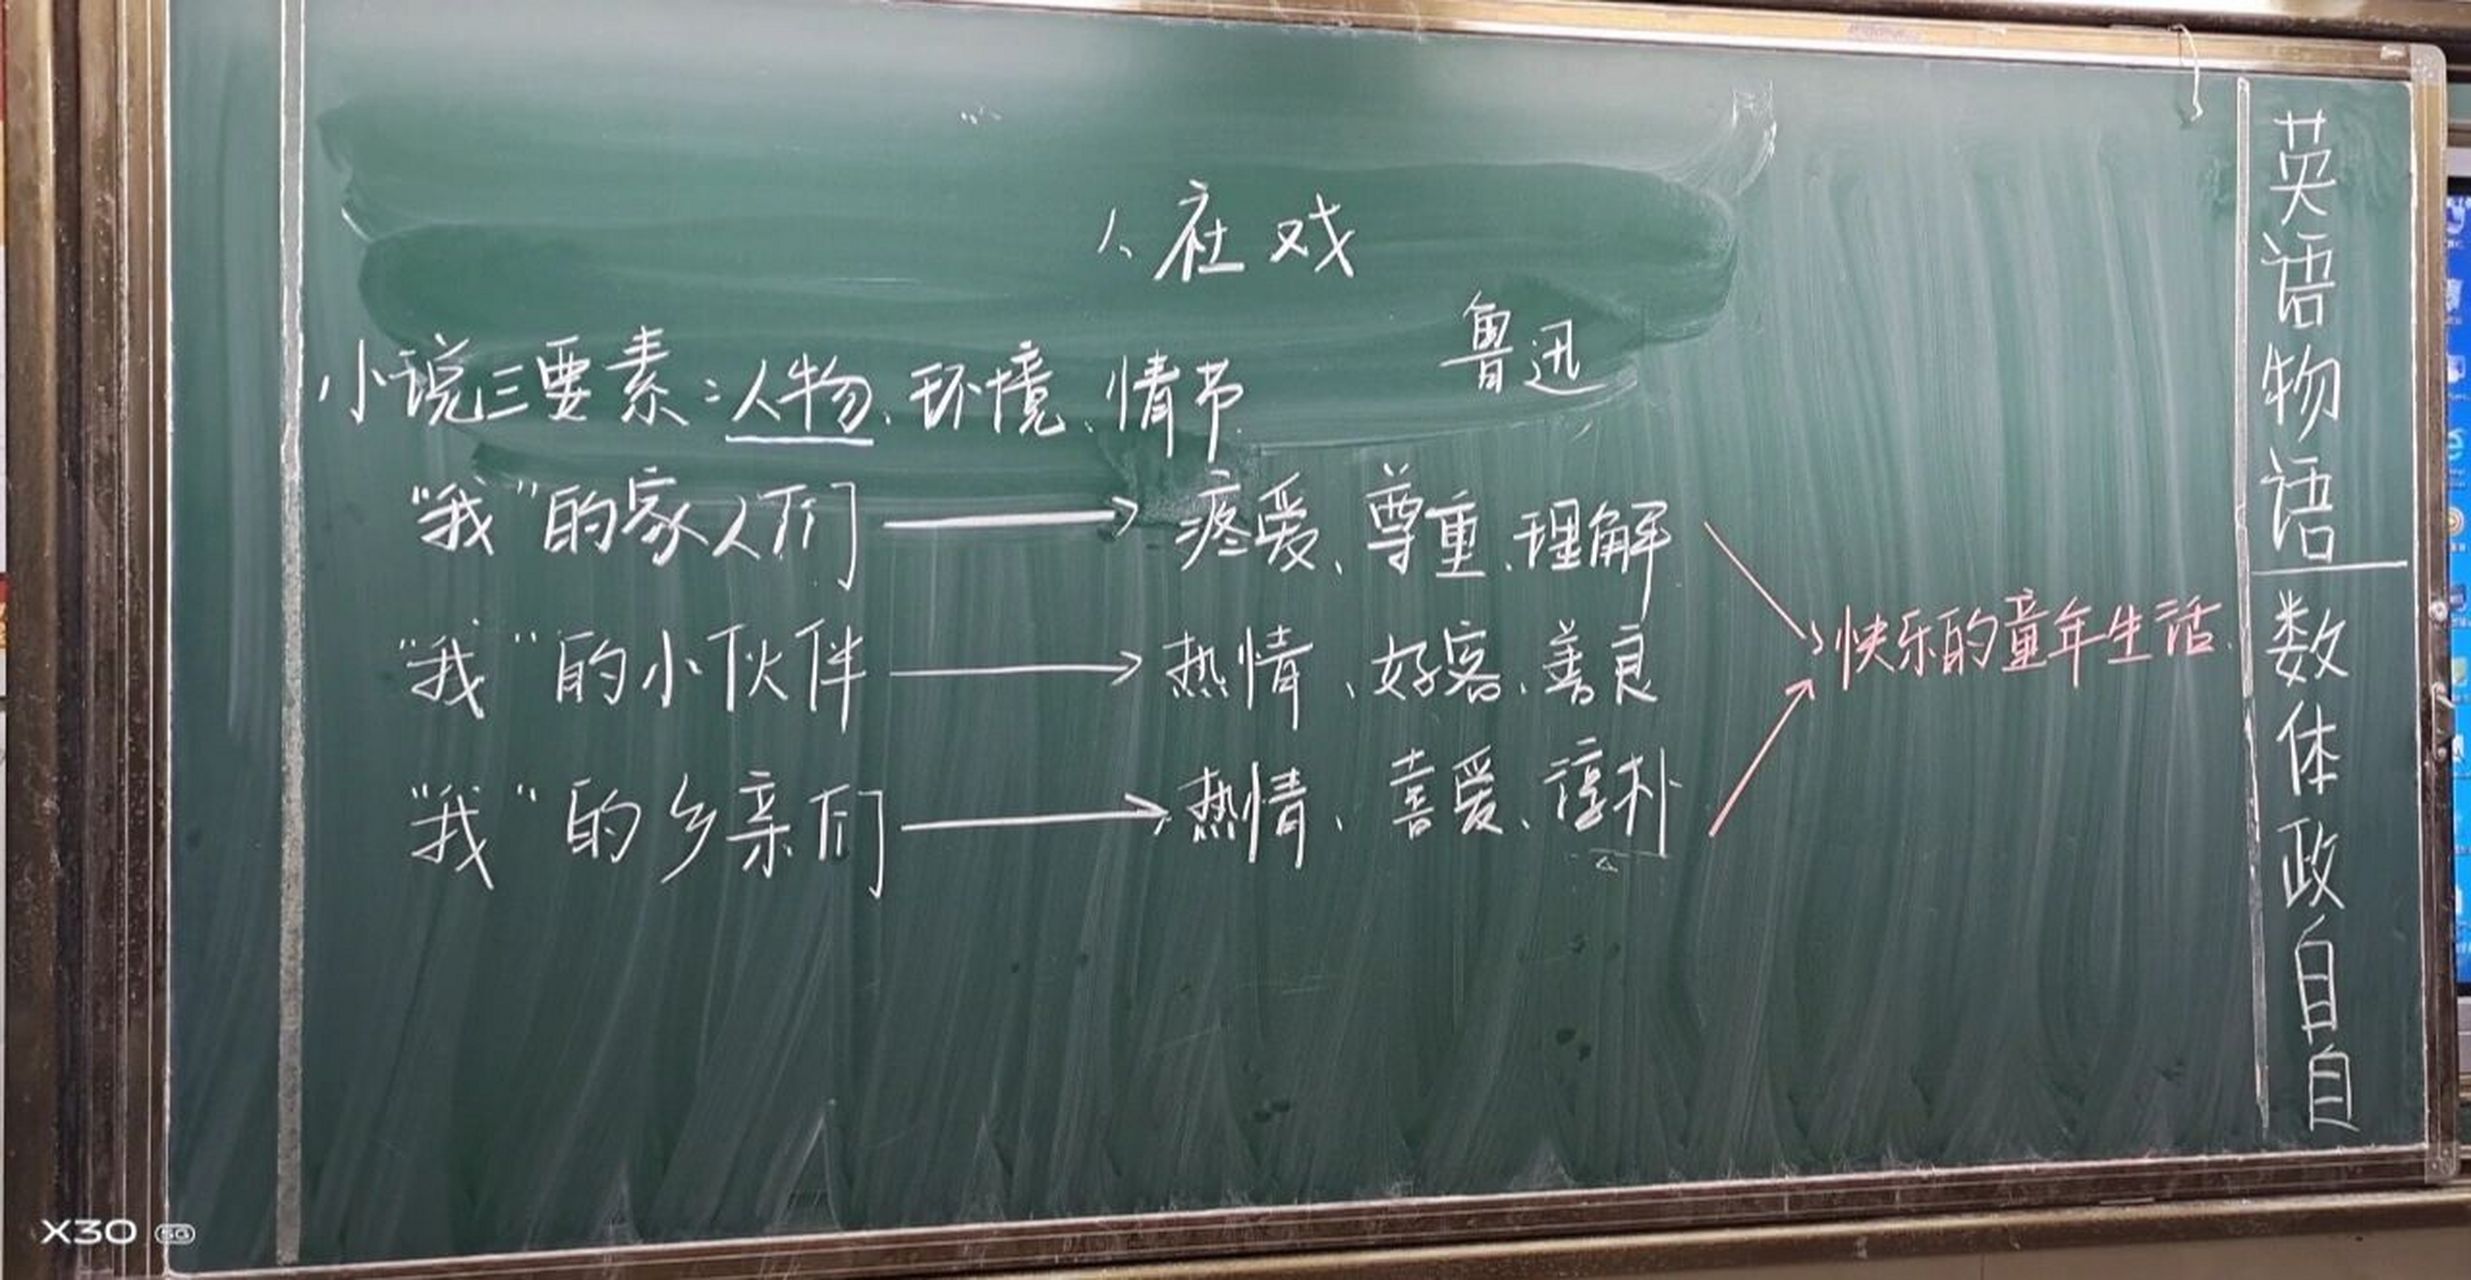 1、社戏
鲁迅
小说三要素：人物、环境、情节
“我”的家人们 → 疼爱、尊重、理解
“我”的小伙伴 → 热情、好客、善良
“我”的乡亲们 → 热情、喜爱、淳朴
快乐的童年生活.
英
语
物
语
数
体
政
自
自
X30 5G